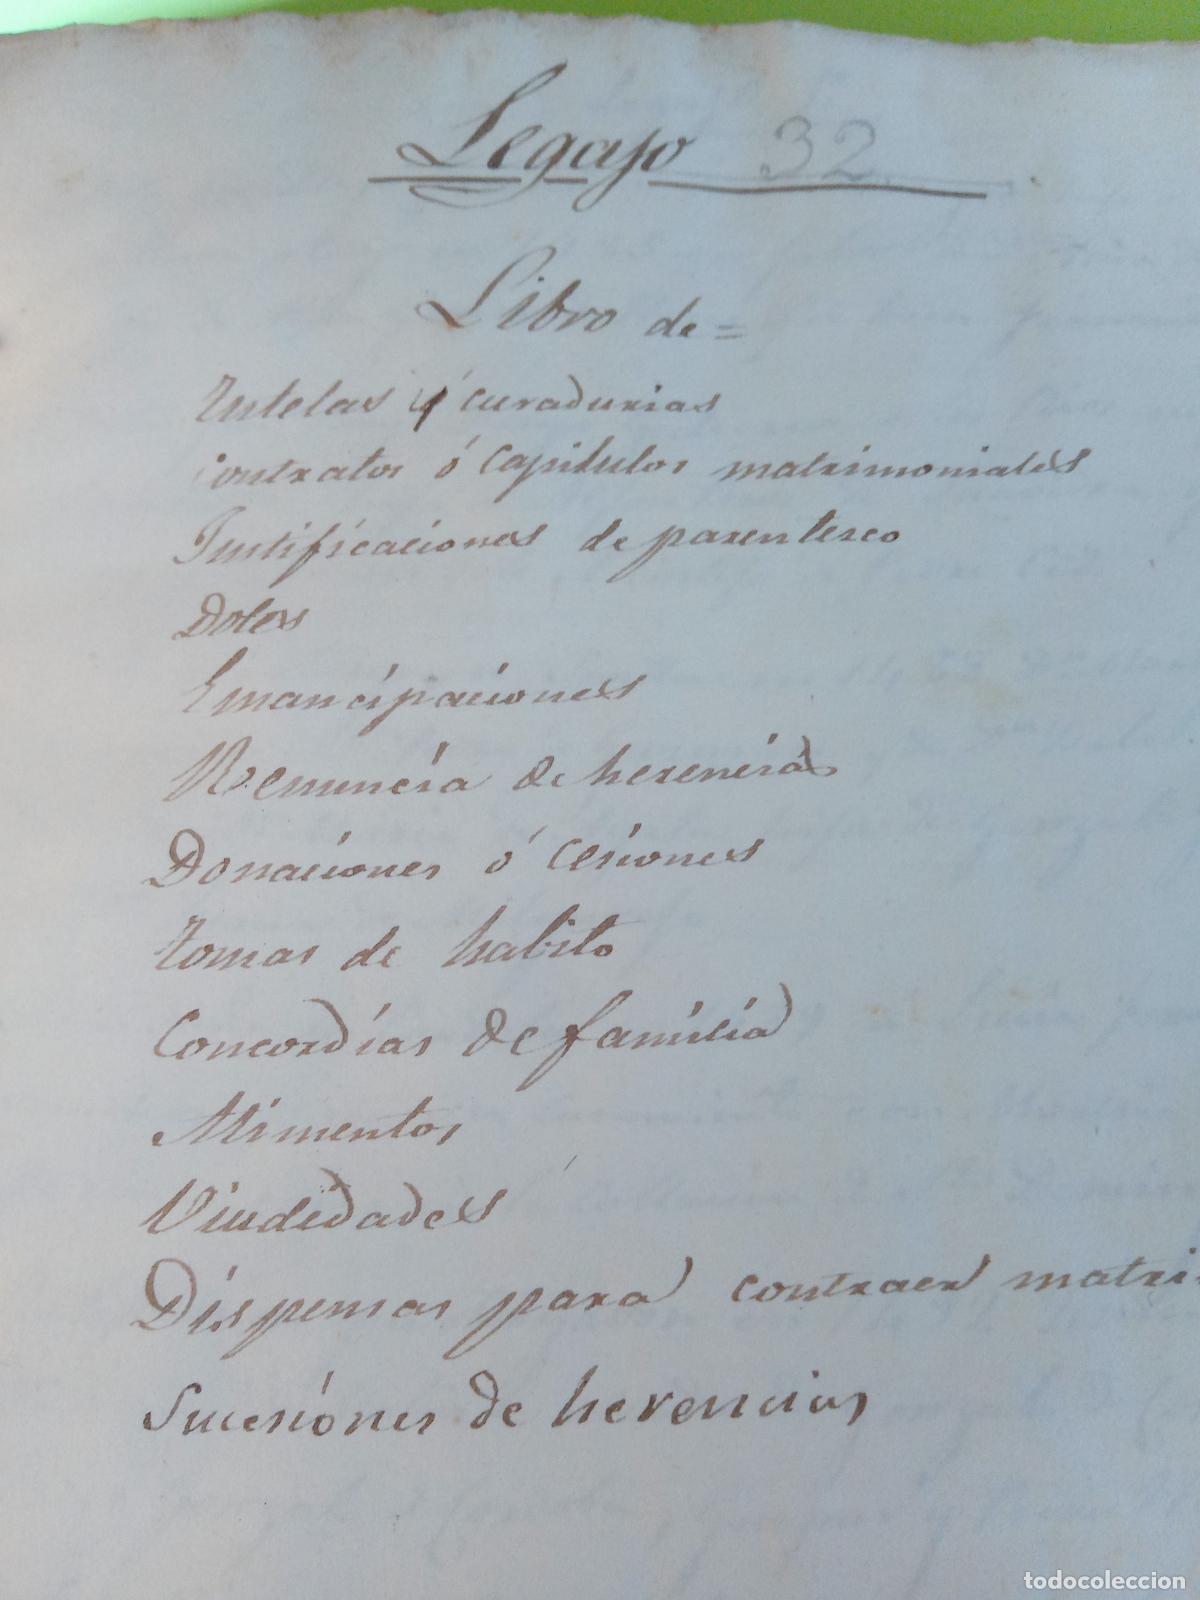 Legajo 32
Libro de=
Tutelas y curadurias
Contratos ó Capitulos matrimoniales
Justificaciones de parentesco
Dotes
Emancipaciones
Renuncia de herencias
Donaciones ó Cesiones
Tomas de habito
Concordias de familia
Alimentos
Viudedades
Dispensas para contraer matri
Sucesiones de herencias
todocoleccion